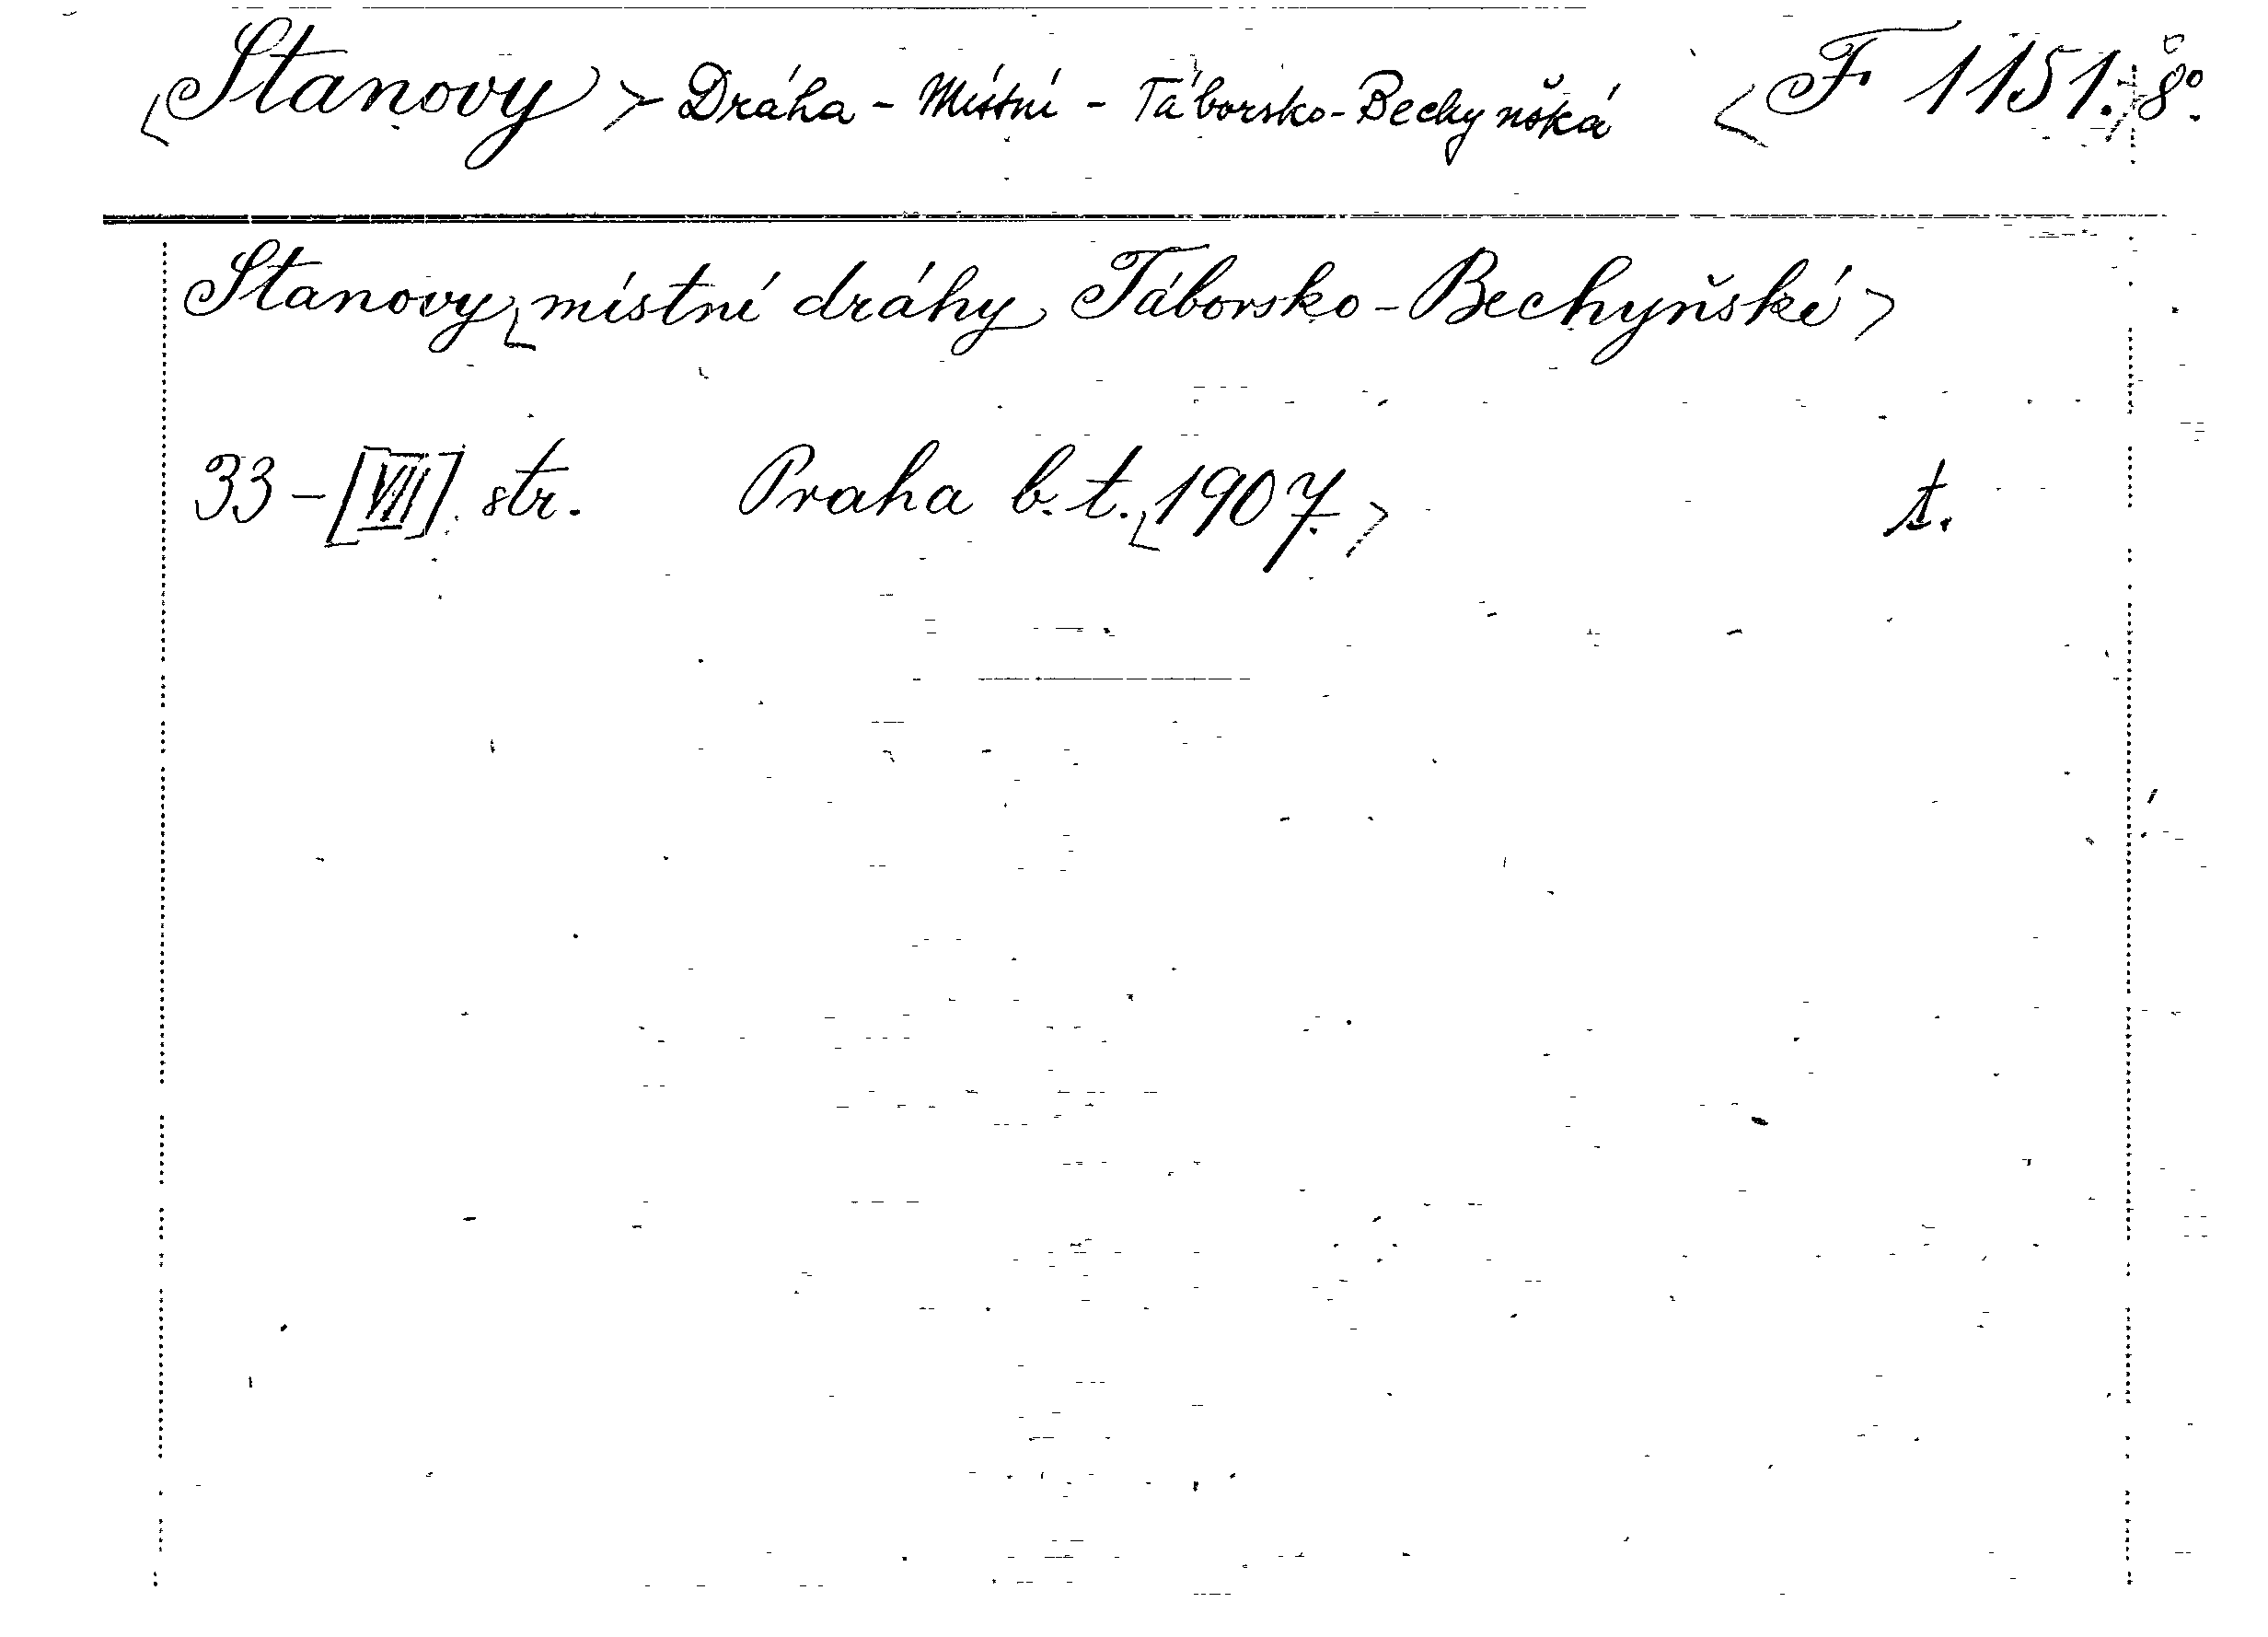 Stanovy > Dráha - Místní - Táborsko-Bechyňská < F 1151./8°.
Stanovy místní dráhy Táborsko-Bechyňské >
33-[VII] str. Praha b.t. 1907. > t.